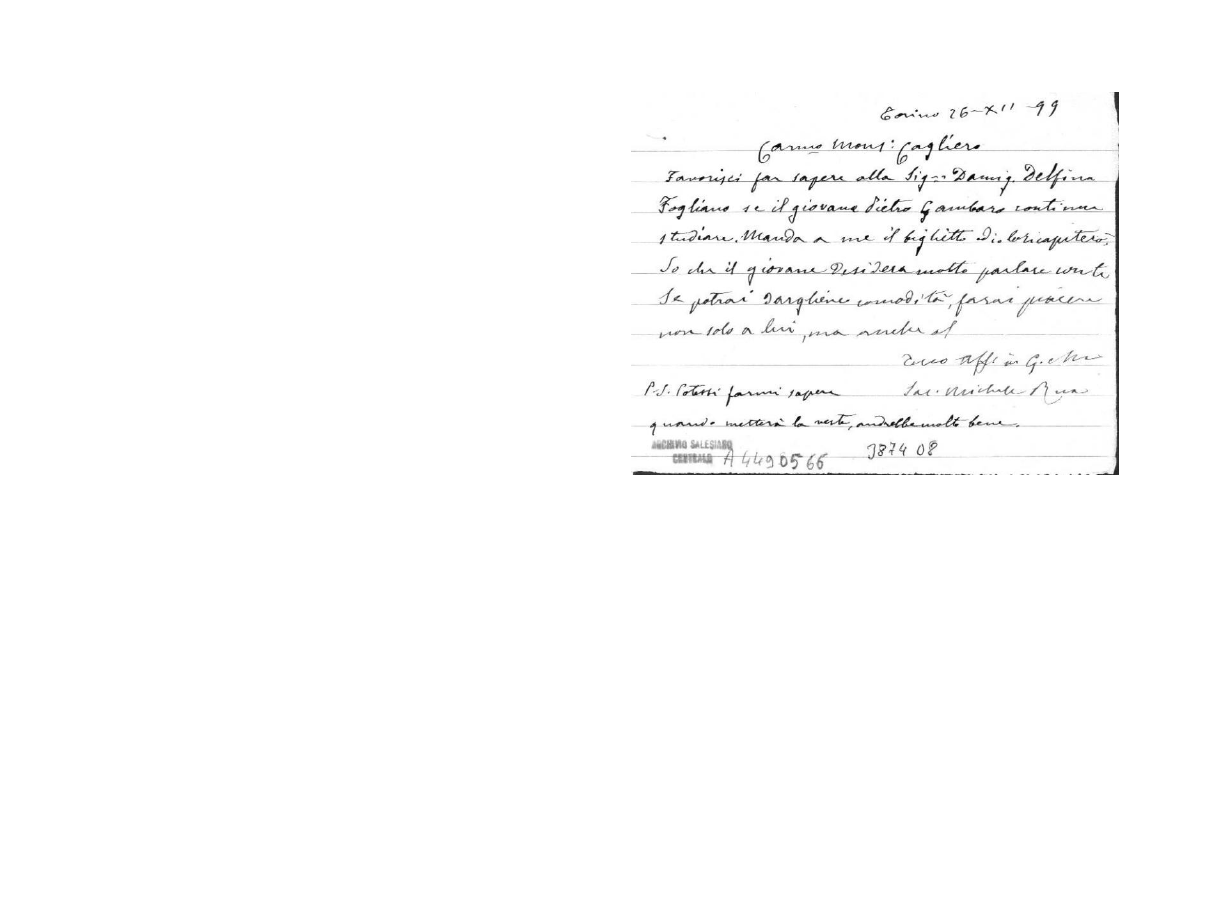 Torino 26-XII-99
Carmo Mons: Cagliero
Favorisci far sapere alla Sig.ra Damig. Delfina
Fogliano se il giovane Pietro Gambaro continua
studiare. Manda a me il biglietto
So che il giovane desidera molto parlare con te
Se potrai dargliene comodità, farai piacere
non solo a lui, ma anche al
Tuo Aff in G. e M.
P.S. Potessi farmi sapere
Sac. Michele Rua
quando metterà la veste, andrebbe molto bene.
ARCHIVIO SALESIANO
CENTRALE
A 4490566
3874 08